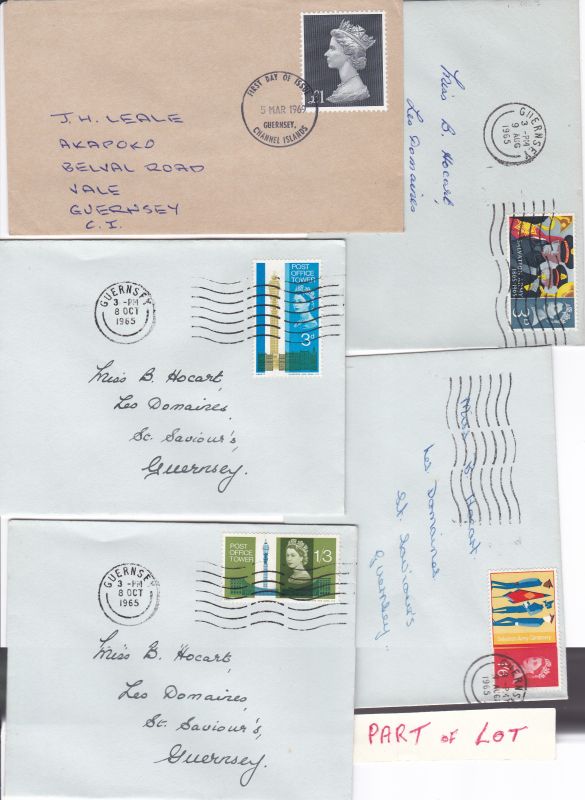 FIRST DAY OF ISSUE
5 MAR 1969
GUERNSEY,
CHANNEL ISLANDS
£1
J.H. LEALE
AKAPOKO
BELVAL ROAD
VALE
GUERNSEY
C.I.
GUERNSEY
3 -PM
9 AUG
1965
Miss B. Hocart,
Les Domaines
SALVATION ARMY
1865-1965
3D
GUERNSEY
3 -PM
8 OCT
1965
POST
OFFICE
TOWER
3D
Miss B. Hocart,
Les Domaines,
St. Saviour's,
Guernsey.
Miss B Hocart
Les Domaines
St. Saviour's
Guernsey
Salvation Army Centenary
1'6
GUERNSEY
3 -PM
9 AUG
1965
GUERNSEY
3 -PM
8 OCT
1965
POST
OFFICE
TOWER
1/3
Miss B. Hocart,
Les Domaines,
St. Saviour's,
Guernsey.
PART OF LOT